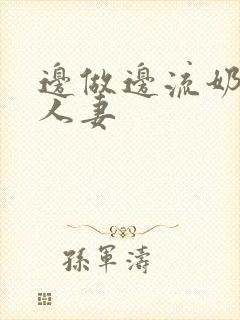 邊做邊流奶
人妻
孫軍濤